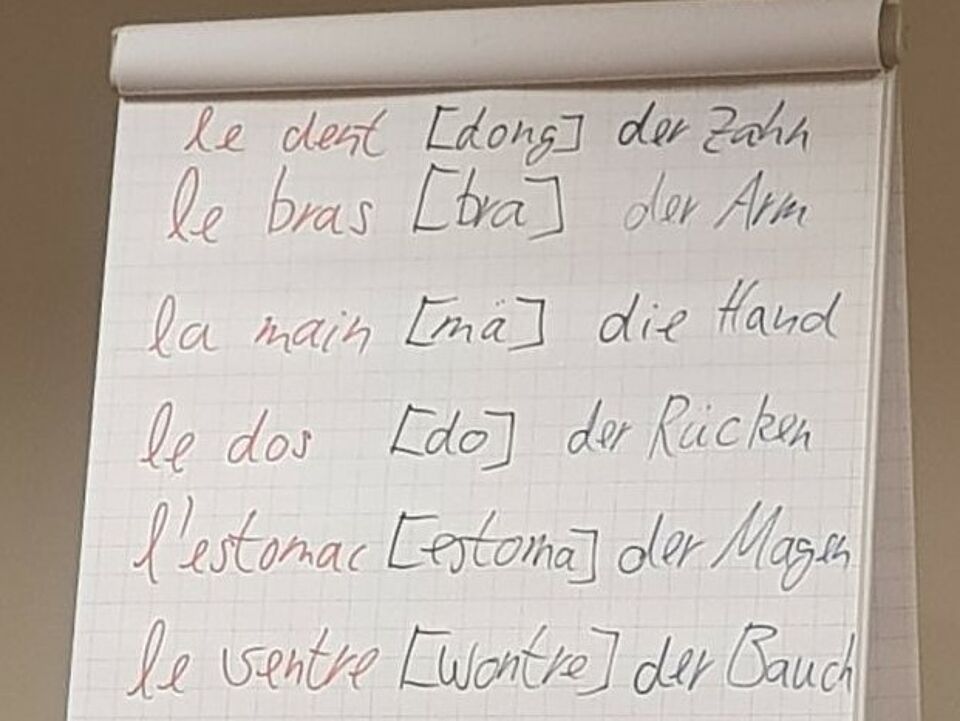 le dent [dong] der Zahn
le bras [bra] der Arm
la main [mä] die Hand
le dos [do] der Rücken
l'estomac [estoma] der Magen
le ventre [wontre] der Bauch